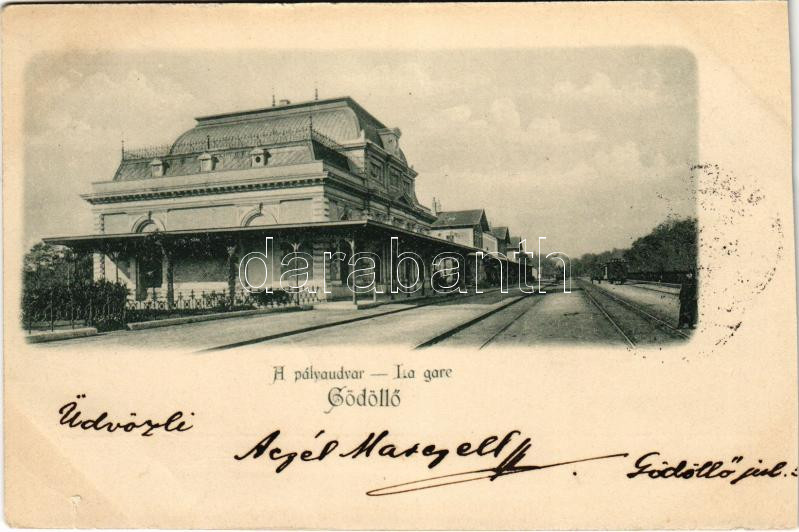 darabanth
A pályaudvar — La gare
Gödöllő
Üdvözli
Aczél Marczell
Gödöllő jul.